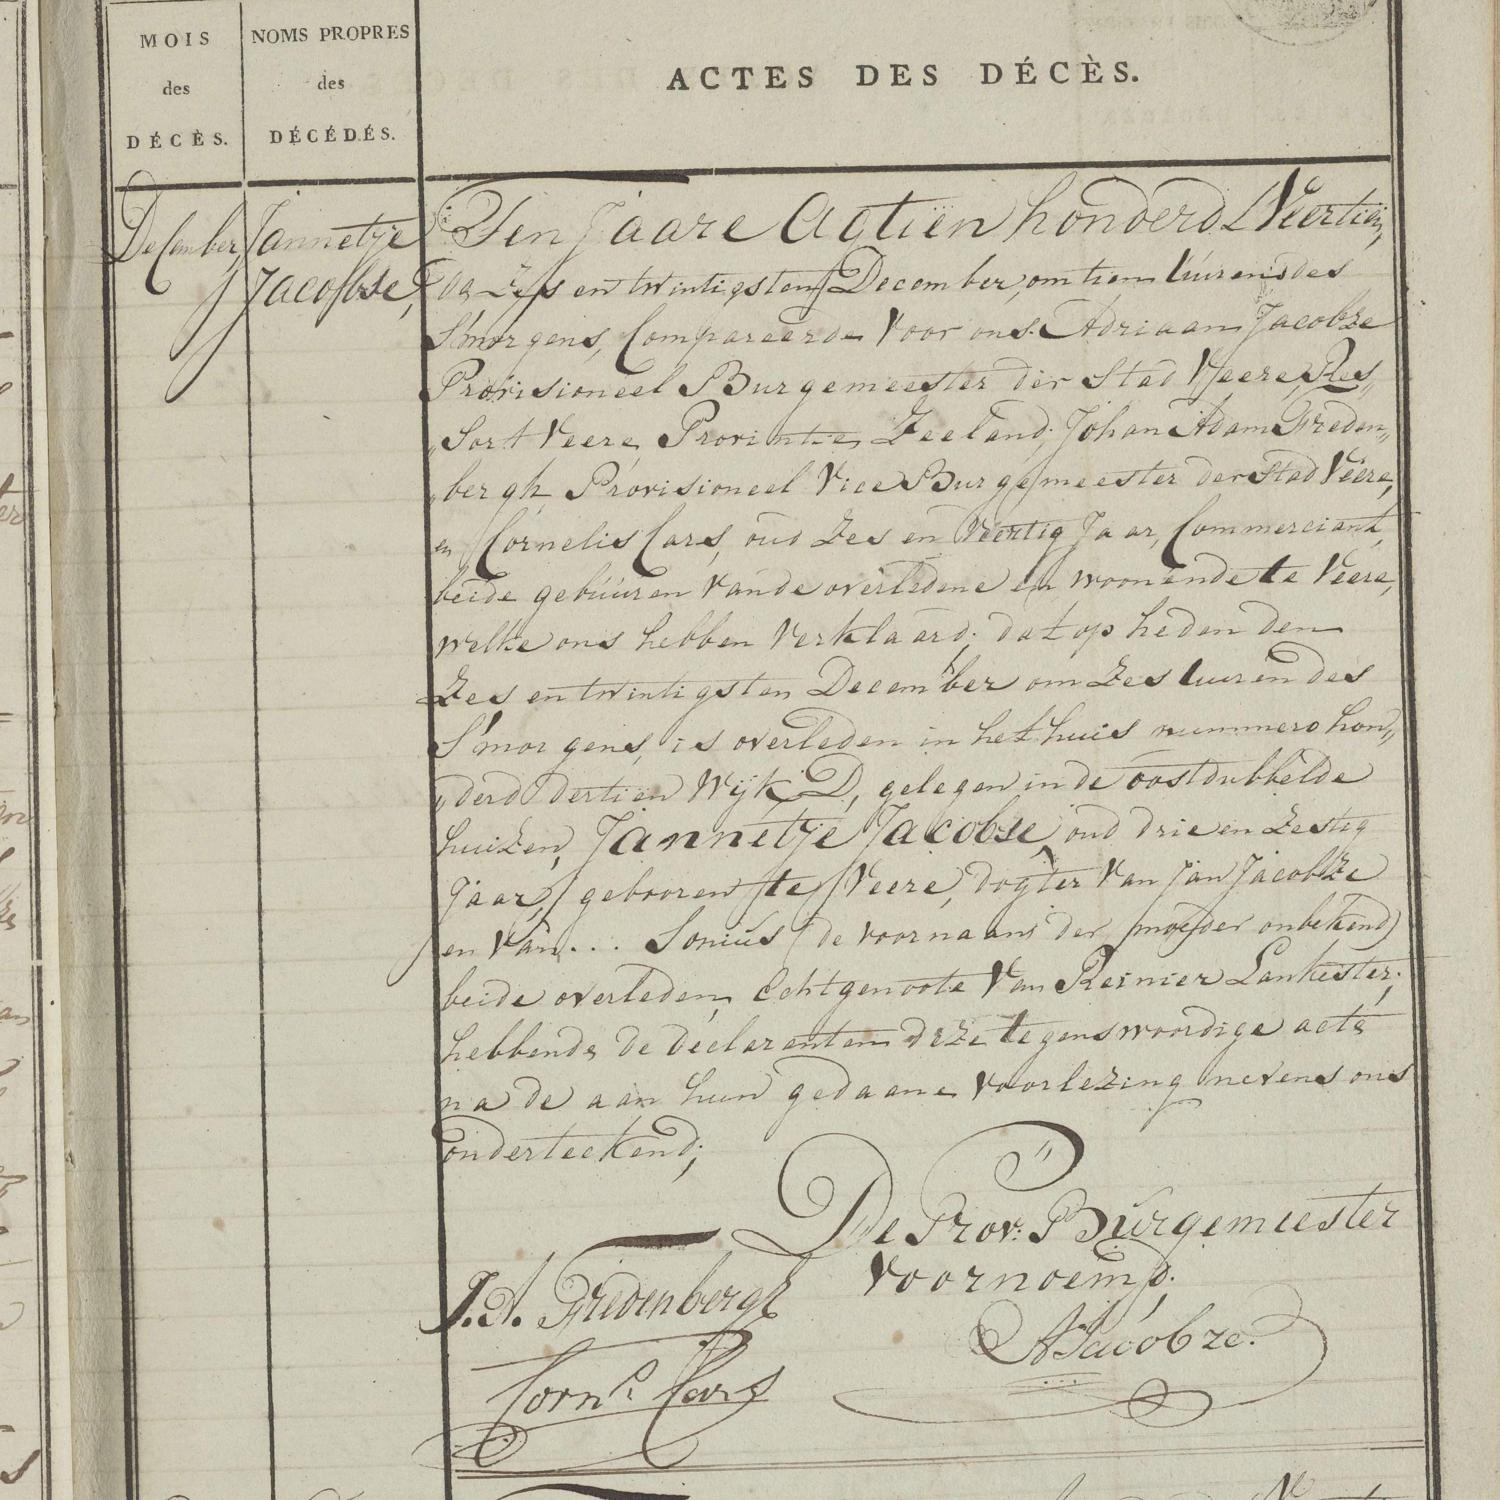 MOIS
des
DÉCÈS.
NOMS PROPRES
des
DÉCÉDÉS.
ACTES DES DÉCÈS.
December
Jannetje
Jacobse,
Den Jaare Agtiën honderd Veertiën,
da Zes en twintigsten December, om tien Uuren des
S'morgens, Compareerde voor ons Adriaan Jacobze
Provisioneel Burgemeester der Stad Veere, Res„
„sort Veere, Provintie Zeeland, Johan Adam Freden„
„bergh Provisioneel Vice Burgemeester der Stad Veere,
en Cornelis Cars, oud Zes en Veertig Jaar, Commerciant,
beide gebuuren van de overledene en woonende te Veere,
welke ons hebben verklaard; dat op heden den
Zes en twintigsten December om Zes Uuren des
S'morgens, is overleden in het huis nummero hon„
„derd dertiën Wijk D, gelegen in de oostdubbelde
huizen, Jannetje Jacobse, oud drie en Zestig
Jaar, gebooren te Veere, dogter van Jan Jacobze
en van... Sonius (de voornaam der moeder onbekend)
beide overleden, Echtgenoote van Reinier Lankester;
hebbende de declaranten deze tegenswoordige acte
na de aan hun gedaane voorlezing nevens ons
onderteekend;
De Prov: Burgemeester
voornoemd.
J. A. Fredenbergh
AJacobze.
Corns. Cars